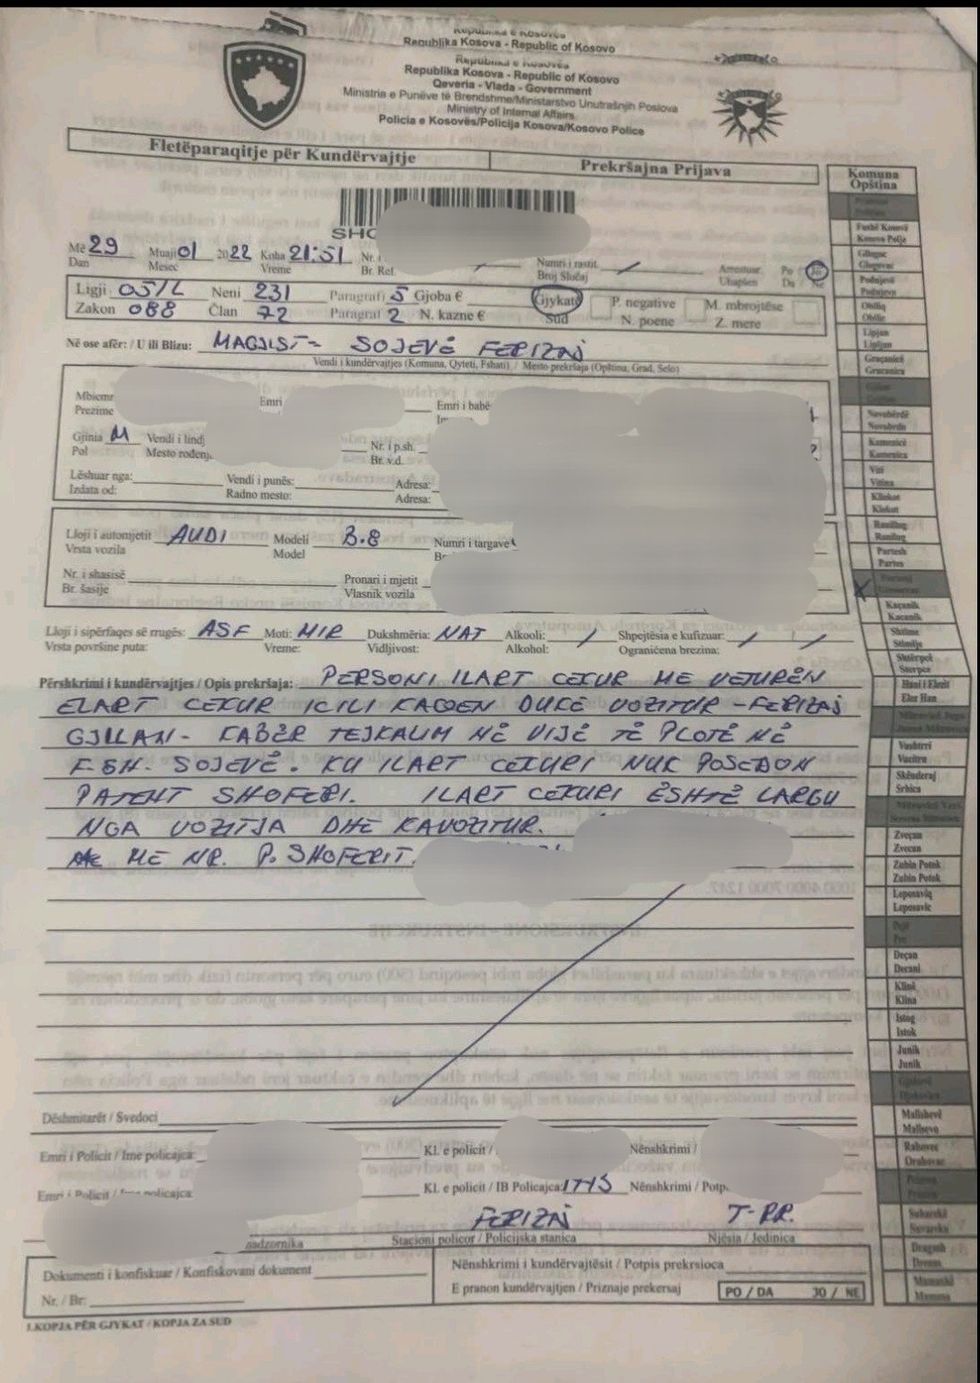 Republika e Kosovës
Republika Kosova - Republic of Kosovo
Republika e Kosovës
Republika Kosova - Republic of Kosovo
Qeveria - Vlada - Government
Ministria e Punëve të Brendshme/Ministarstvo Unutrašnjih Poslova
Ministry of Internal Affairs
Policia e Kosovës/Policija Kosova/Kosovo Police
Fletëparaqitje për Kundërvajtje Prekršajna Prijava
Komuna
Opština
SHC
Më 29 Muaji 01 2022 Koha 21:51 Nr. Numri i rastit / Arrestuar Po Jo
Dan Mesec Vreme Br. Ref. Broj Slučaj Uhapšen Da Ne
Ligji 05/L Neni 231 Paragrafi 5 Gjoba € Gjykatë P. negative M. mbrojtëse
Zakon 088 Član 72 Paragraf 2 N. kazne € Sud N. poene Z. mere
Në ose afër: / U ili Blizu: MAGJIST- SOJEVË FERIZAJ
Vendi i kundërvajtjes (Komuna, Qyteti, Fshati) / Mesto prekršaja (Opština, Grad, Selo)
Mbiemr Emri Emri i babë
Prezime
Gjinia M Vendi i lindj Nr. i p.sh.
Pol Mesto rođenj Br. v.d.
Lëshuar nga: Vendi i punës: Adresa:
Izdata od: Radno mesto: Adresa:
Lloji i automjetit AUDI Modeli B.8 Numri i targave
Vrsta vozila Model
Nr. i shasisë Pronari i mjetit
Br. šasije Vlasnik vozila
Lloji i sipërfaqes së rrugës: ASF Moti: MIR Dukshmëria: NAT Alkooli: / Shpejtësia e kufizuar: / /
Vrsta površine puta: Vreme: Vidljivost: Alkohol: Ograničena brezina:
Përshkrimi i kundërvajtjes / Opis prekršaja: PERSONI ILART CEKUR ME VETURËN
ELART CEKUR ICILI KAQEN DUKE VOZITUR - FERIZAJ
GJILLAN - KABËR TEJKALIM NË VIJË TË PLOTË NË
F.SH. SOJEVË. KU ILART CEKURI NUK POSEDON
PATENT SHOFERI. ILART CEKURI ËSHTË LARGU
NGA VOZITJA DHE KAVOZITUR.
ME NR. P. SHOFERIT.
Dëshmitarët / Svedoci
Emri i Policit / Ime policajca: Kl. e policit / Nënshkrimi /
Emri i Policit / Ime policajca: Kl. e policit / IB Policajca: 1775 Nënshkrimi / Potp.
FERIZAJ T-RR.
nadzornika Stacioni policor / Policijska stanica Njësia / Jedinica
Dokumenti i konfiskuar / Konfiskovani dokument Nënshkrimi i kundërvajtësit / Potpis prekrsioca
Nr. / Br: E pranon kundërvajtjen / Priznaje prekersaj PO / DA 30 / NE
I.KOPJA PËR GJYKAT / KOPJA ZA SUD
Fushë Kosovë
Kosova Polje
Gllogoc
Glogovac
Podujevë
Podujevo
Obiliq
Obilic
Lipjan
Lipljan
Graçanicë
Gracanica
Novobërdë
Novobrdo
Kamenicë
Kamenica
Viti
Vitina
Kllokot
Klokot
Ranillug
Ranilug
Partesh
Partes
Kaçanik
Kacanik
Shtime
Stimlje
Shtërpcë
Strpce
Hani i Elezit
Elez Han
Vushtrri
Vucitrn
Skënderaj
Srbica
Zveçan
Zvecan
Zubin Potok
Zubin Potok
Leposaviq
Leposavic
Deçan
Decani
Klinë
Klina
Istog
Istok
Junik
Junik
Malishevë
Malisevo
Rahovec
Orahovac
Suharekë
Suvareka
Dragash
Dragas
Mamushë
Mamusa